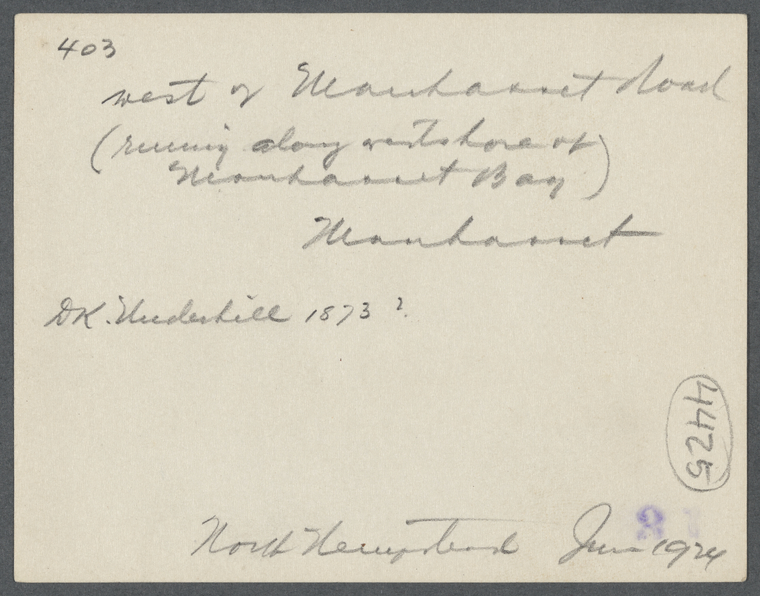 403
west of Manhasset Road
(running along west shore of
Manhasset Bay)
Manhasset
DK. Underhill 1873 ?
4425
North Hempstead June 1924